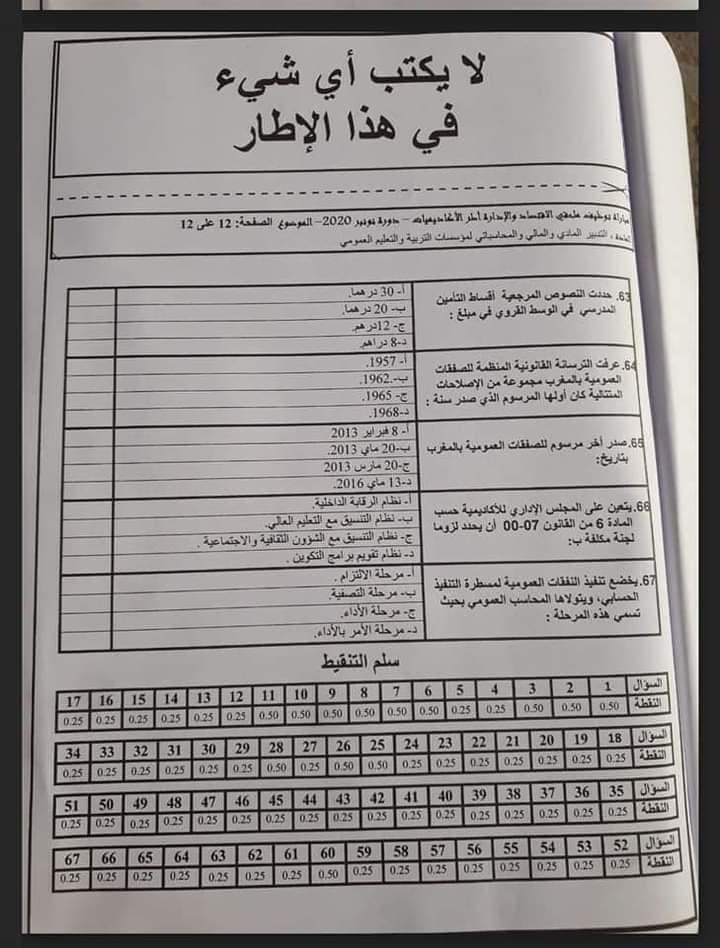 لا يكتب أي شيء
في هذا الإطار
مباراة توظيف ملحقي الاقتصاد والإدارة أطر الأكاديميات – دورة نونبر 2020– الموضوع الصفحة: 12 على 12
المادة: التدبير المادي والمالي والمحاسباتي لمؤسسات التربية والتعليم العمومي
63. حددت النصوص المرجعية أقساط التأمين
المدرسي في الوسط القروي في مبلغ :
أ- 30 درهما.
ب- 20 درهما.
ج- 12درهم.
د-8 دراهم.
64. عرفت الترسانة القانونية المنظمة للصفقات
العمومية بالمغرب مجموعة من الإصلاحات
المتتالية كان أولها المرسوم الذي صدر سنة :
أ- 1957.
ب-.1962.
ج- 1965.
د-1968.
65.صدر أخر مرسوم للصفقات العمومية بالمغرب
بتاريخ:
أ- 8 فبراير 2013
ب-20 ماي 2013.
ج-20 مارس 2013
د-13 ماي 2016.
66. يتعين على المجلس الإداري للأكاديمية حسب
المادة 6 من القانون 07-00 أن يحدد لزوما
لجنة مكلفة ب:
أ- نظام الرقابة الداخلية.
ب- نظام التنسيق مع التعليم العالي.
ج- نظام التنسيق مع الشؤون الثقافية والاجتماعية .
د- نظام تقويم برامج التكوين .
67.يخضع تنفيذ النفقات العمومية لمسطرة التنفيذ
الحسابي، ويتولاها المحاسب العمومي بحيث
تسمي هذه المرحلة :
أ- مرحلة الالتزام .
ب- مرحلة التصفية.
ج- مرحلة الأداء.
د- مرحلة الأمر بالأداء.
سلم التنقيط
السؤال 1 2 3 4 5 6 7 8 9 10 11 12 13 14 15 16 17
النقطة 0.50 0.50 0.50 0.25 0.25 0.50 0.50 0.50 0.50 0.50 0.50 0.25 0.25 0.25 0.25 0.25 0.25
السؤال 18 19 20 21 22 23 24 25 26 27 28 29 30 31 32 33 34
النقطة 0.25 0.25 0.25 0.25 0.25 0.25 0.25 0.50 0.50 0.25 0.50 0.25 0.25 0.25 0.25 0.25 0.25
السؤال 35 36 37 38 39 40 41 42 43 44 45 46 47 48 49 50 51
النقطة 0.25 0.25 0.25 0.25 0.25 0.25 0.25 0.25 0.25 0.25 0.25 0.25 0.25 0.25 0.25 0.25 0.25
السؤال 52 53 54 55 56 57 58 59 60 61 62 63 64 65 66 67
النقطة 0.25 0.25 0.25 0.25 0.25 0.25 0.25 0.25 0.50 0.25 0.25 0.25 0.25 0.25 0.25 0.25